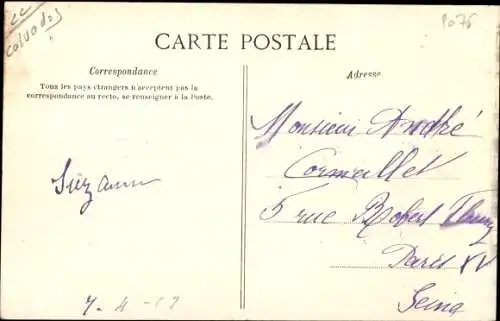 cc
Calvados
1075
CARTE POSTALE
Correspondance
Tous les pays étrangers n'acceptent pas la
correspondance au recto, se renseigner à la Poste.
Adresse
Suzanne
7-4-17
Monsieur André
Cormeillet
5 rue Robert Fleury
Paris XV
Seine